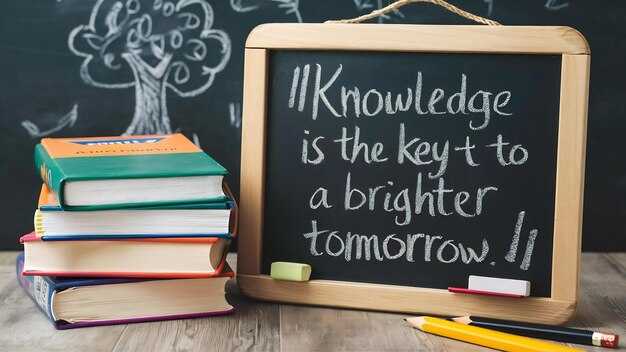 "Knowledge
is the key t to
a brighter
tomorrow."